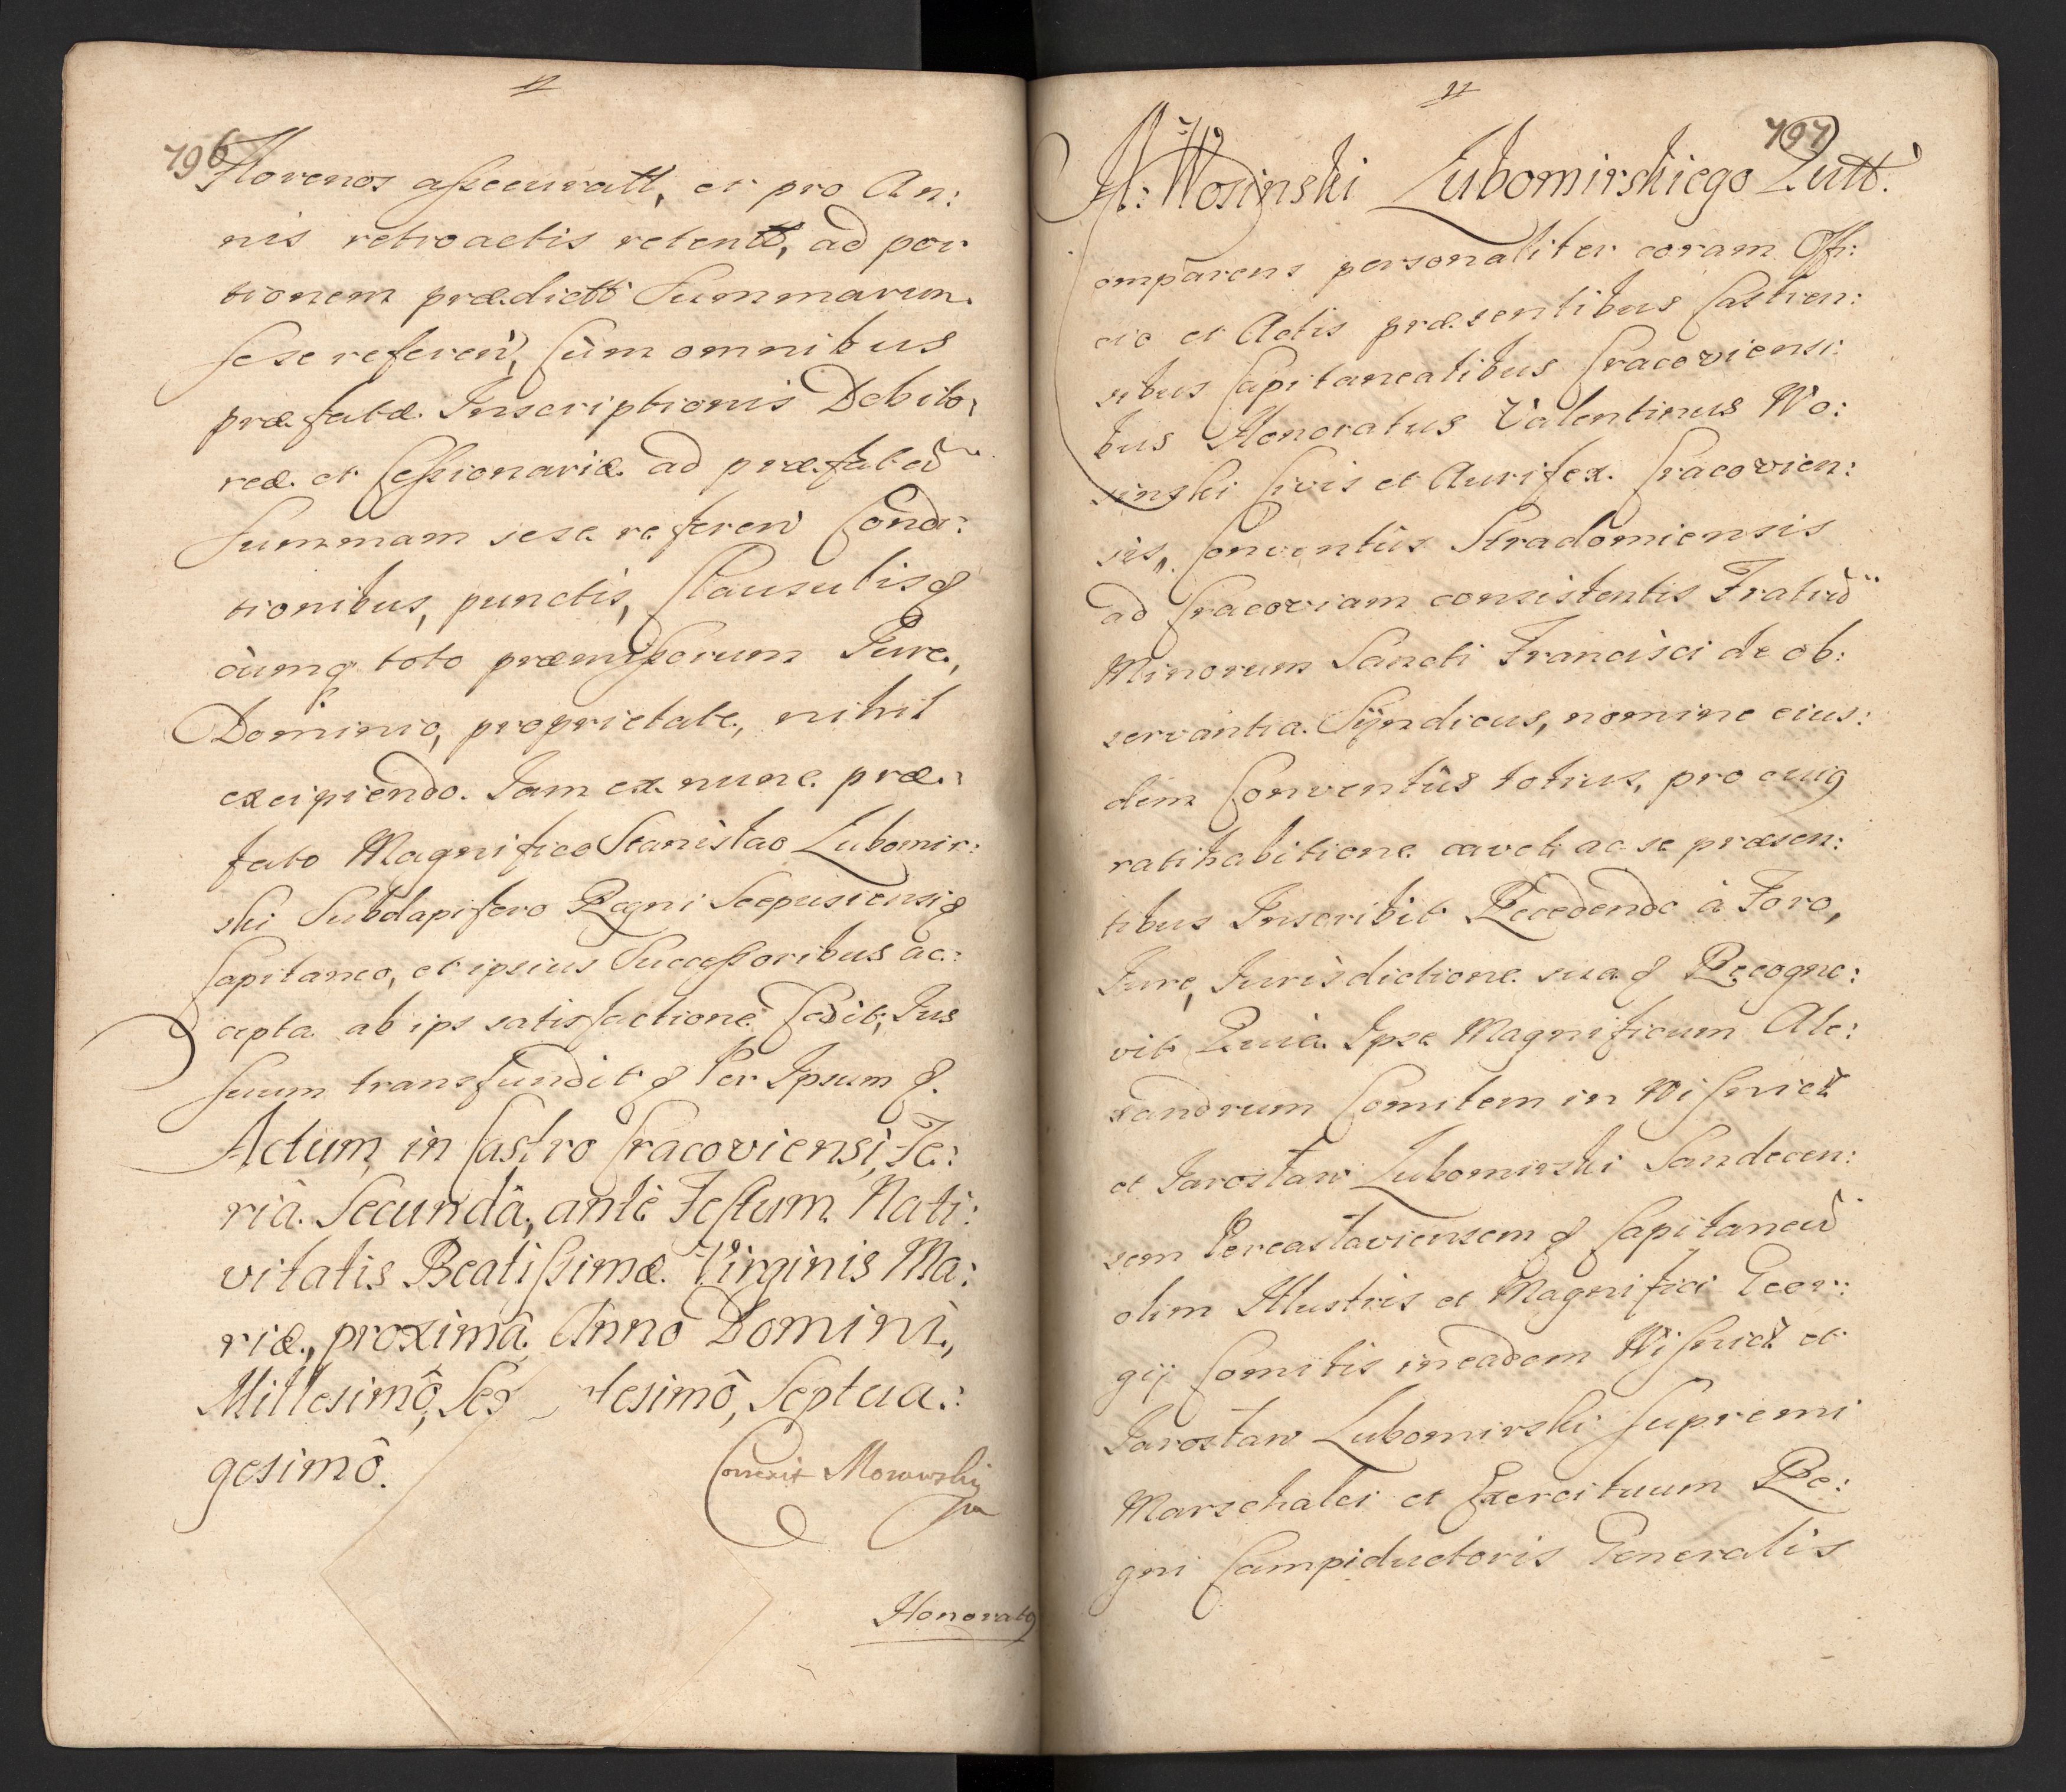 796
Florenos assecuratt, et pro An:
nis retroactis retentt, ad por
tionem prædictt Summarum
sese referen, Cùm omnibus
præfatæ Inscriptionis Debito:
reæ et Cessionariæ ad præfatad
Summam sese referen Condi:
tionibus, punctis, Clausulisq
cùmq toto præmissorum Iure,
Dominio, proprietate, nihil
excipiendo. Iam ex nunc præ:
fato Magnifico Stanislao Lubomir:
ski Subdapifero Regni Scepusiensiq
Capitaneo, et ipsius Successoribus ac:
cepta ab ips satisfactione Cedit, Ius
suum transfundit & Per Ipsum &.
Actum in Castro Cracoviensi, Fe:
riâ Secundâ, antè Festum Nati:
vitatis Beatissimæ Virginis Ma:
riæ, proximâ Annô Domini,
Millesimô, Sex tesimô, Septua:
gesimô.
Correxit Morawski
Honoratq
797
A: Wosinski Lubomirskiego Quitt.
omparens personaliter coram Offi:
cio et Actis præsentibus Castren:
sibus Capitanealibus Cracoviensi:
bus Honoratus Valentinus Wo:
sinski Civis et Aurifex Cracovien:
sis, Conventûs Stradomiensis
ad Cracoviam consistentis Fratrũ
Minorum Sancti Francisci de ob:
servantia Syndicus, nomine eius:
dem Conventûs totius, pro cuiq
ratihabitione cavet ac se præsen:
tibus Inscribit Recedendo à Foro,
Iure, Iurisdictione sua & Recogno:
vit Quia Ipse Magnificum Ale:
xandrum Comitem in Wisnicz
et Jarosław Lubomirski Sandecen:
sem Pereasłaviensem & Capitaneũ
olim Illustris et Magnifici Geor:
gij Comitis in eadem Wisnicz et
Jarosław Lubomirski Supremi
Marschalci et Exercituum Re:
gni Campiductoris Generalis